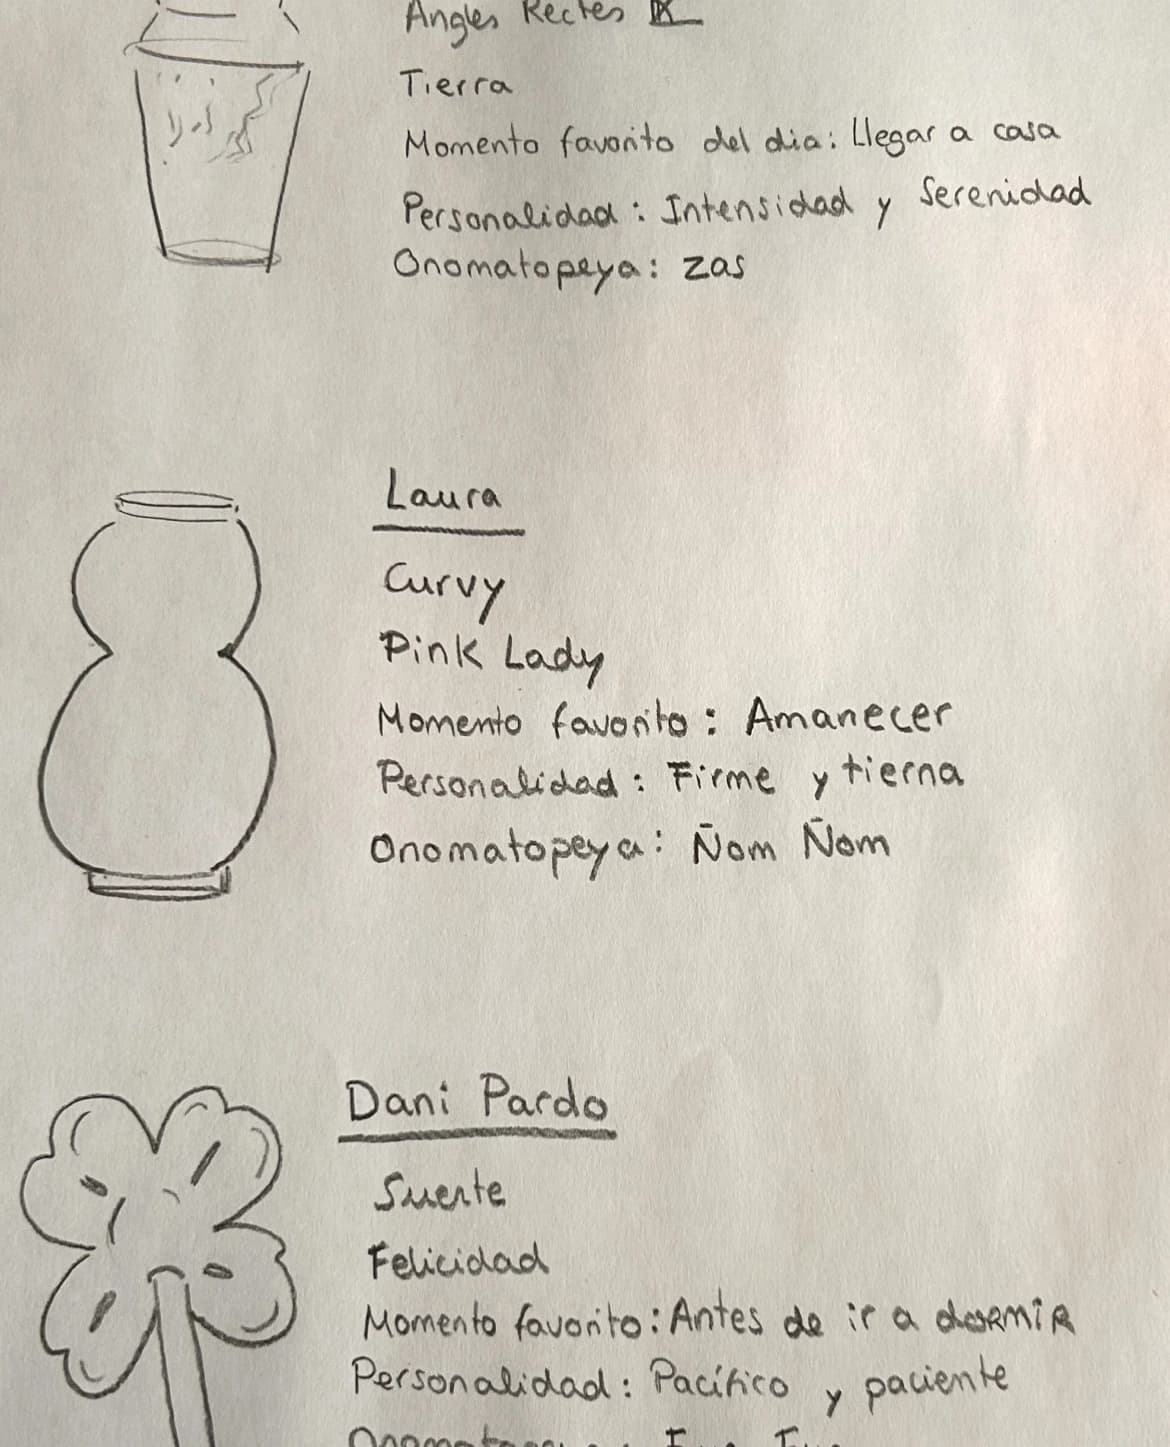 Angles Rectes
Tierra
Momento favorito del dia: Llegar a casa
Personalidad: Intensidad y Serenidad
Onomatopeya: zas
Laura
Curvy
Pink Lady
Momento favorito: Amanecer
Personalidad: Firme y tierna
Onomatopeya: Ñom Ñom
Dani Pardo
Suerte
Felicidad
Momento favorito: Antes de ir a dormir
Personalidad: Pacífico y paciente